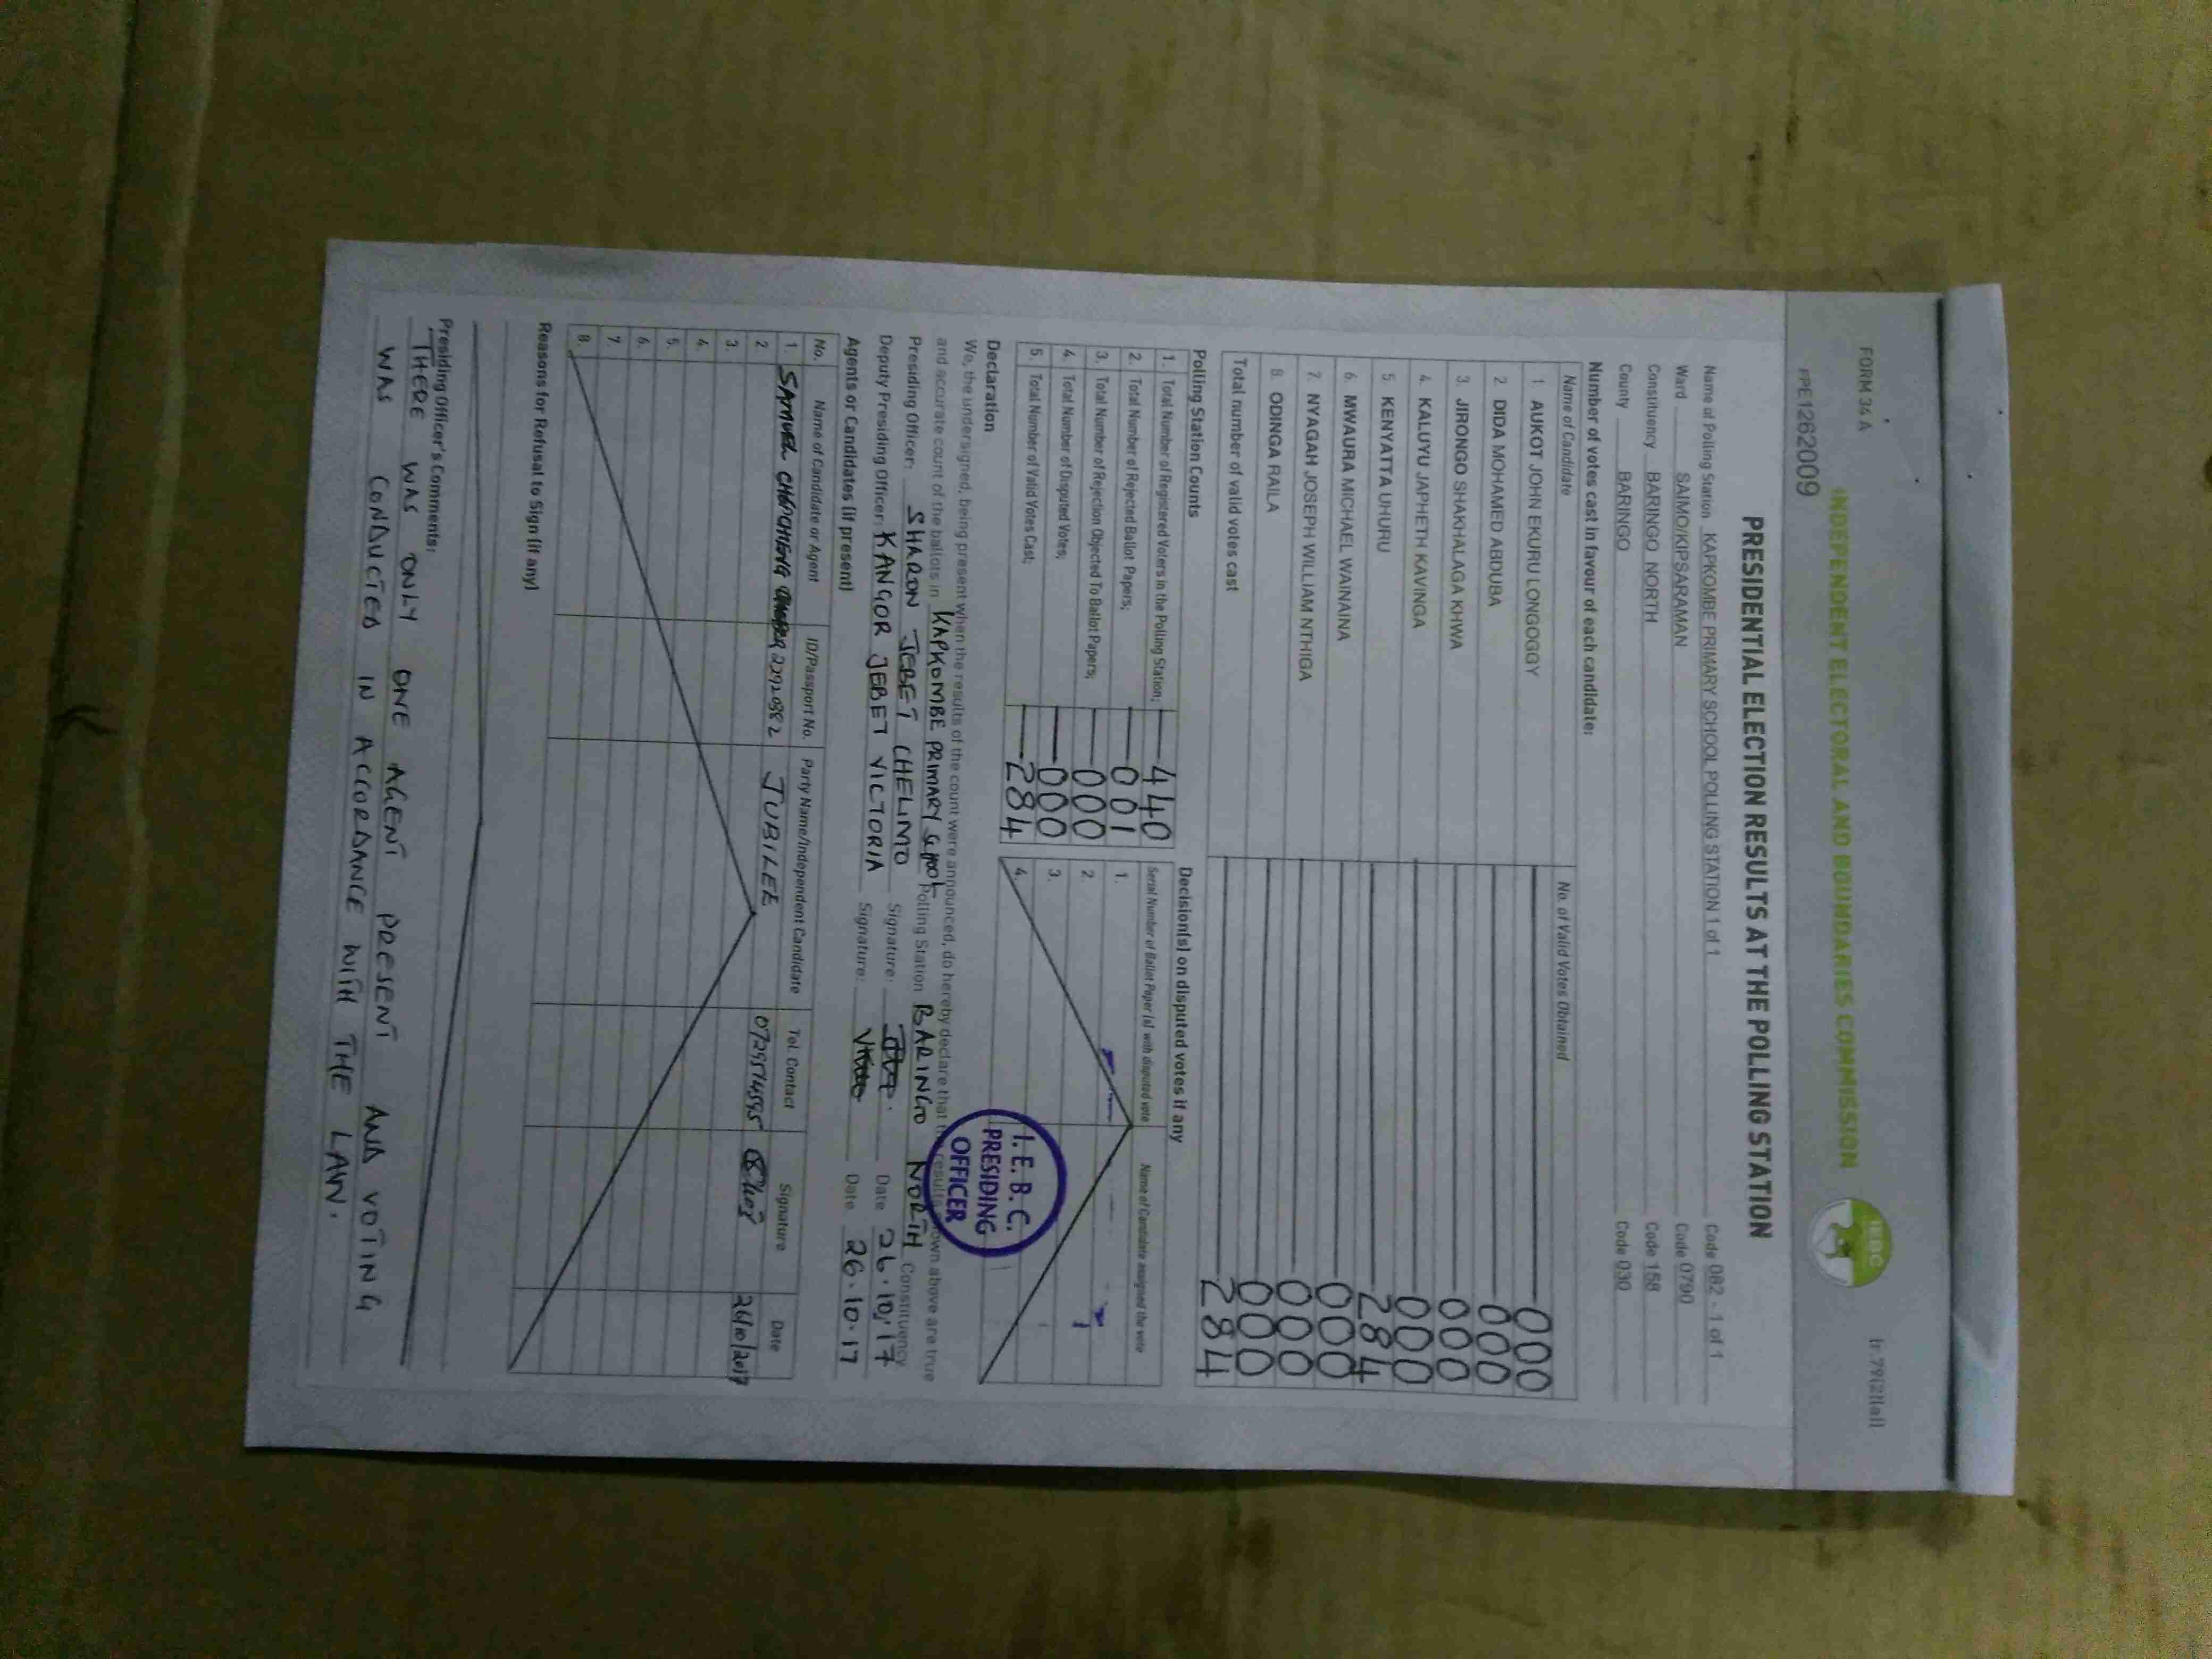 FORM 34 A
(r. 79(2)(a))
INDEPENDENT ELECTORAL AND BOUNDARIES COMMISSION
IEBC
PPE1262009
PRESIDENTIAL ELECTION RESULTS AT THE POLLING STATION
Name of Polling Station KAPKOMBE PRIMARY SCHOOL POLLING STATION 1 of 1 Code 082 - 1 of 1
Ward SAIMO/KIPSARAMAN Code 0790
Constituency BARINGO NORTH Code 158
County BARINGO Code 030
Number of votes cast in favour of each candidate:
Name of Candidate No. of Valid Votes Obtained
1. AUKOT JOHN EKURU LONGOGGY 000
2. DIDA MOHAMED ABDUBA 000
3. JIRONGO SHAKHALAGA KHWA 000
4. KALUYU JAPHETH KAVINGA 000
5. KENYATTA UHURU 284
6. MWAURA MICHAEL WAINAINA 000
7. NYAGAH JOSEPH WILLIAM NTHIGA 000
8. ODINGA RAILA 000
Total number of valid votes cast 284
Polling Station Counts
1. Total Number of Registered Voters in the Polling Station; 440
2. Total Number of Rejected Ballot Papers; 001
3. Total Number of Rejection Objected To Ballot Papers; 000
4. Total Number of Disputed Votes; 000
5. Total Number of Valid Votes Cast; 284
Decision(s) on disputed votes if any
Serial Number of Ballot Paper (s) with disputed vote Name of Candidate assigned the vote
1.
2.
3.
4.
I.E.B.C.
PRESIDING
OFFICER
Declaration
We, the undersigned, being present when the results of the count were announced, do hereby declare that the results shown above are true
and accurate count of the ballots in KAPKOMBE PRIMARY SCHOOL Polling Station BARINGO NORTH Constituency
Presiding Officer: SHARON JEBET CHELIMO Signature: Date 26.10.17
Deputy Presiding Officer: KANGOR JEBET VICTORIA Signature: Date 26.10.17
Agents or Candidates (if present)
No. Name of Candidate or Agent ID/Passport No. Party Name/Independent Candidate Tel. Contact Signature Date
1. SAMUEL JUBILEE 26/10/2017
2.
3.
4.
5.
6.
7.
8.
Reasons for Refusal to Sign (if any)
Presiding Officer's Comments:
THERE WAS ONLY ONE AGENT PRESENT AND VOTING
WAS CONDUCTED IN ACCORDANCE WITH THE LAW.